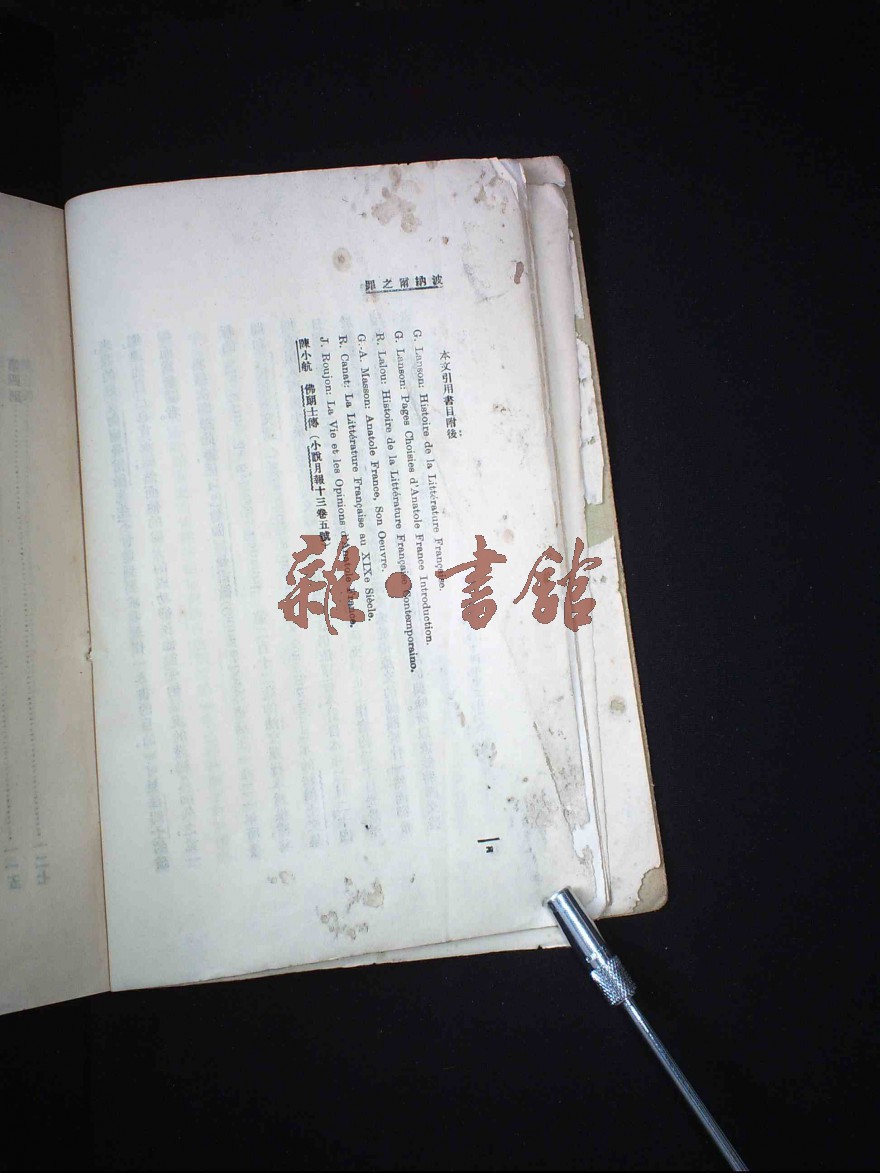 波納爾之罪
本文引用書目附後
G. Lanson: Histoire de la Littérature Française.
G. Lanson: Pages Choisies d'Anatole France Introduction.
R. Lalou: Histoire de la Littérature Française Contemporaine.
G.-A. Masson: Anatole France, Son Oeuvre.
R. Canat: La Littérature Française au XIXe Siècle.
J. Roujon: La Vie et les Opinions d'Anatole France.
陳小航 佛朗士傳(小說月報十三卷五號)
雜·書館